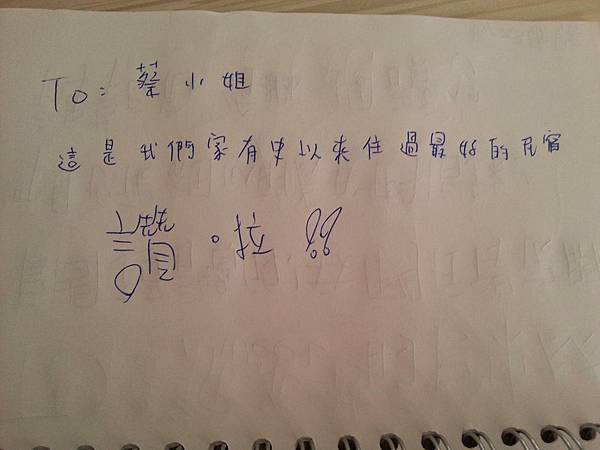 To: 蔡小姐
這是我們家有史以來住過最好的民宿
讚。拉!!